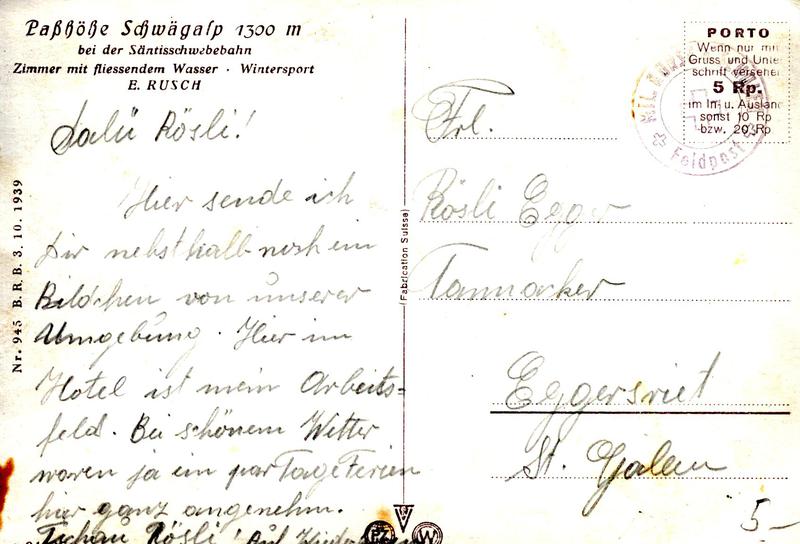 Paßhöhe Schwägalp 1300 m
bei der Säntisschwebebahn
Zimmer mit fliessendem Wasser · Wintersport
E. RUSCH
Salü Rösli!
Hier sende ich
Dir nebst halb noch ein
Bildchen von unserer
Umgebung. Hier im
Hotel ist mein Arbeits=
feld. Bei schönem Wetter
waren ja ein par Tage Ferien
hier ganz angenehm.
Tschau Rösli! Auf Wiedersehen
Nr. 945 B. R. B. 3. 10. 1939
(Fabrication Suisse)
PORTO
Wenn nur mit
Gruss und Unte
schrift versehen
5 Rp.
im In- u. Ausland
sonst 10 Rp
bzw. 20 Rp
Feldpost
Frl.
Rösli Egger
Tannacker
Eggersriet
St. Gallen
5-